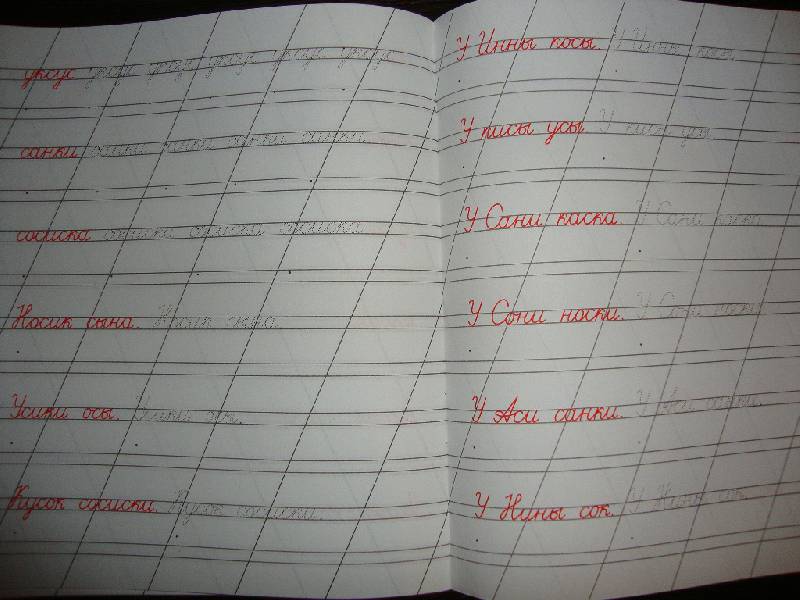 укус укус укус укус укус укус
санки санки санки санки санки
сосиска сосиска сосиска сосиска
Носик сына. Носик сына.
Усики осы. Усики осы.
Кусок сосиски. Кусок сосиски.
У Инны косы. У Инны косы.
У кисы усы. У кисы усы.
У Сани каска. У Сани каска.
У Сони носки. У Сони носки.
У Аси санки. У Аси санки.
У Нины сок. У Нины сок.